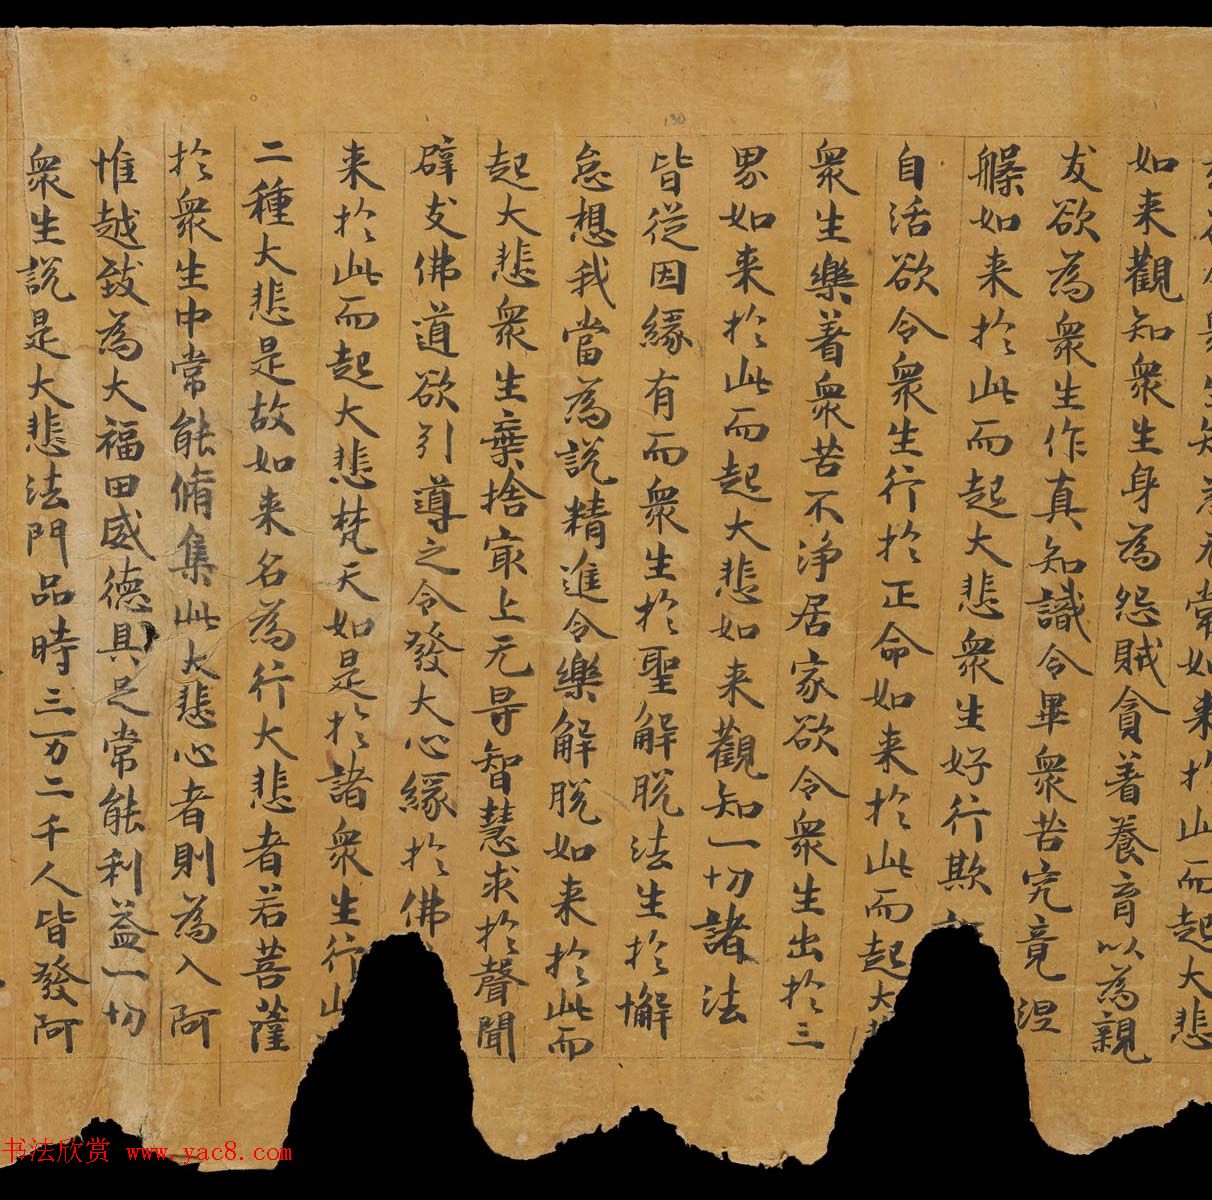 生知為无常如来於此而起大悲
如来觀知衆生身為怨賊貪著養育以為親
友欲為衆生作真知識令畢衆苦究竟涅
槃如来於此而起大悲衆生好行欺
自活欲令衆生行於正命如来於此而起大
衆生樂著衆苦不浄居家欲令衆生出於三
界如来於此而起大悲如来觀知一切諸法
皆從因緣有而衆生於聖解脱法生於懈
怠想我當為説精進令樂解脱如来於此而
起大悲衆生棄捨㝡上无㝵智慧求於聲聞
辟支佛道欲引導之令發大心緣於佛
来於此而起大悲梵天如是於諸衆生行
二種大悲是故如来名為行大悲者若菩薩
於衆生中常能脩集此大悲心者則為入阿
惟越致為大福田威德具足常能利益一切
衆生説是大悲法門品時三万二千人皆發阿
130
书法欣赏 www.yac8.com